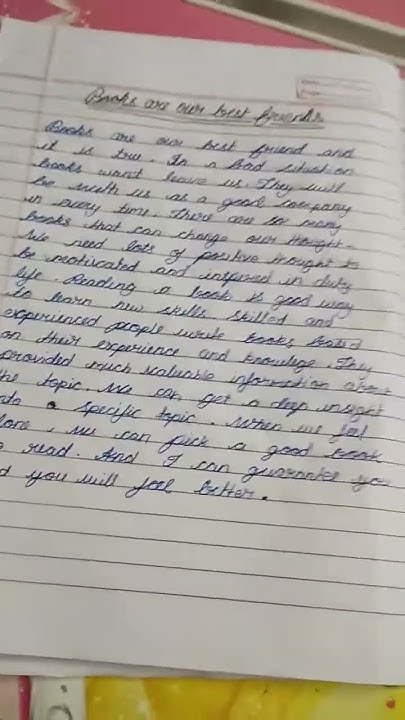 Books are our best friends
Books are our best friend and
it is true. In a bad situation
books want leave us. They will
be with us as a good company
in every time. There are so many
books that can change our thought.
We need lots of positive thought to
be motivated and inspired in duty
life. Reading a book is good way
to learn new skills. Skilled and
experienced people write books based
on their experience and knowlege. They
provided much valuable information about
the topic. We can get a deep insight
a specific topic. When we feel
lone, we can pick a good book
read. And I can guarantee you
you will feel better.